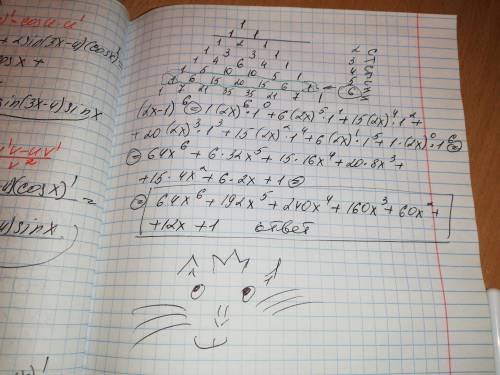 1
1 1
1 2 1
1 3 3 1
1 4 6 4 1
1 5 10 10 5 1
1 6 15 20 15 6 1 ← 6
1 7 21 35 35 21 7 1
2
3
4
5
(2x-1)⁶ = 1(2x)⁶·1⁰ + 6(2x)⁵·1¹ + 15(2x)⁴·1² +
+ 20(2x)³·1³ + 15(2x)²·1⁴ + 6(2x)¹·1⁵ + 1·(2x)⁰·1⁶ =
= 64x⁶ + 6·32x⁵ + 15·16x⁴ + 20·8x³ +
+ 15·4x² + 6·2x + 1 =
= 64x⁶ + 192x⁵ + 240x⁴ + 160x³ + 60x² +
+ 12x + 1 ответ
+ 2sin(3x-4)(cosx)' =
cosx +
sin(3x-4)sinx
u'v-uv'
v²
(cosx)' =
sinx